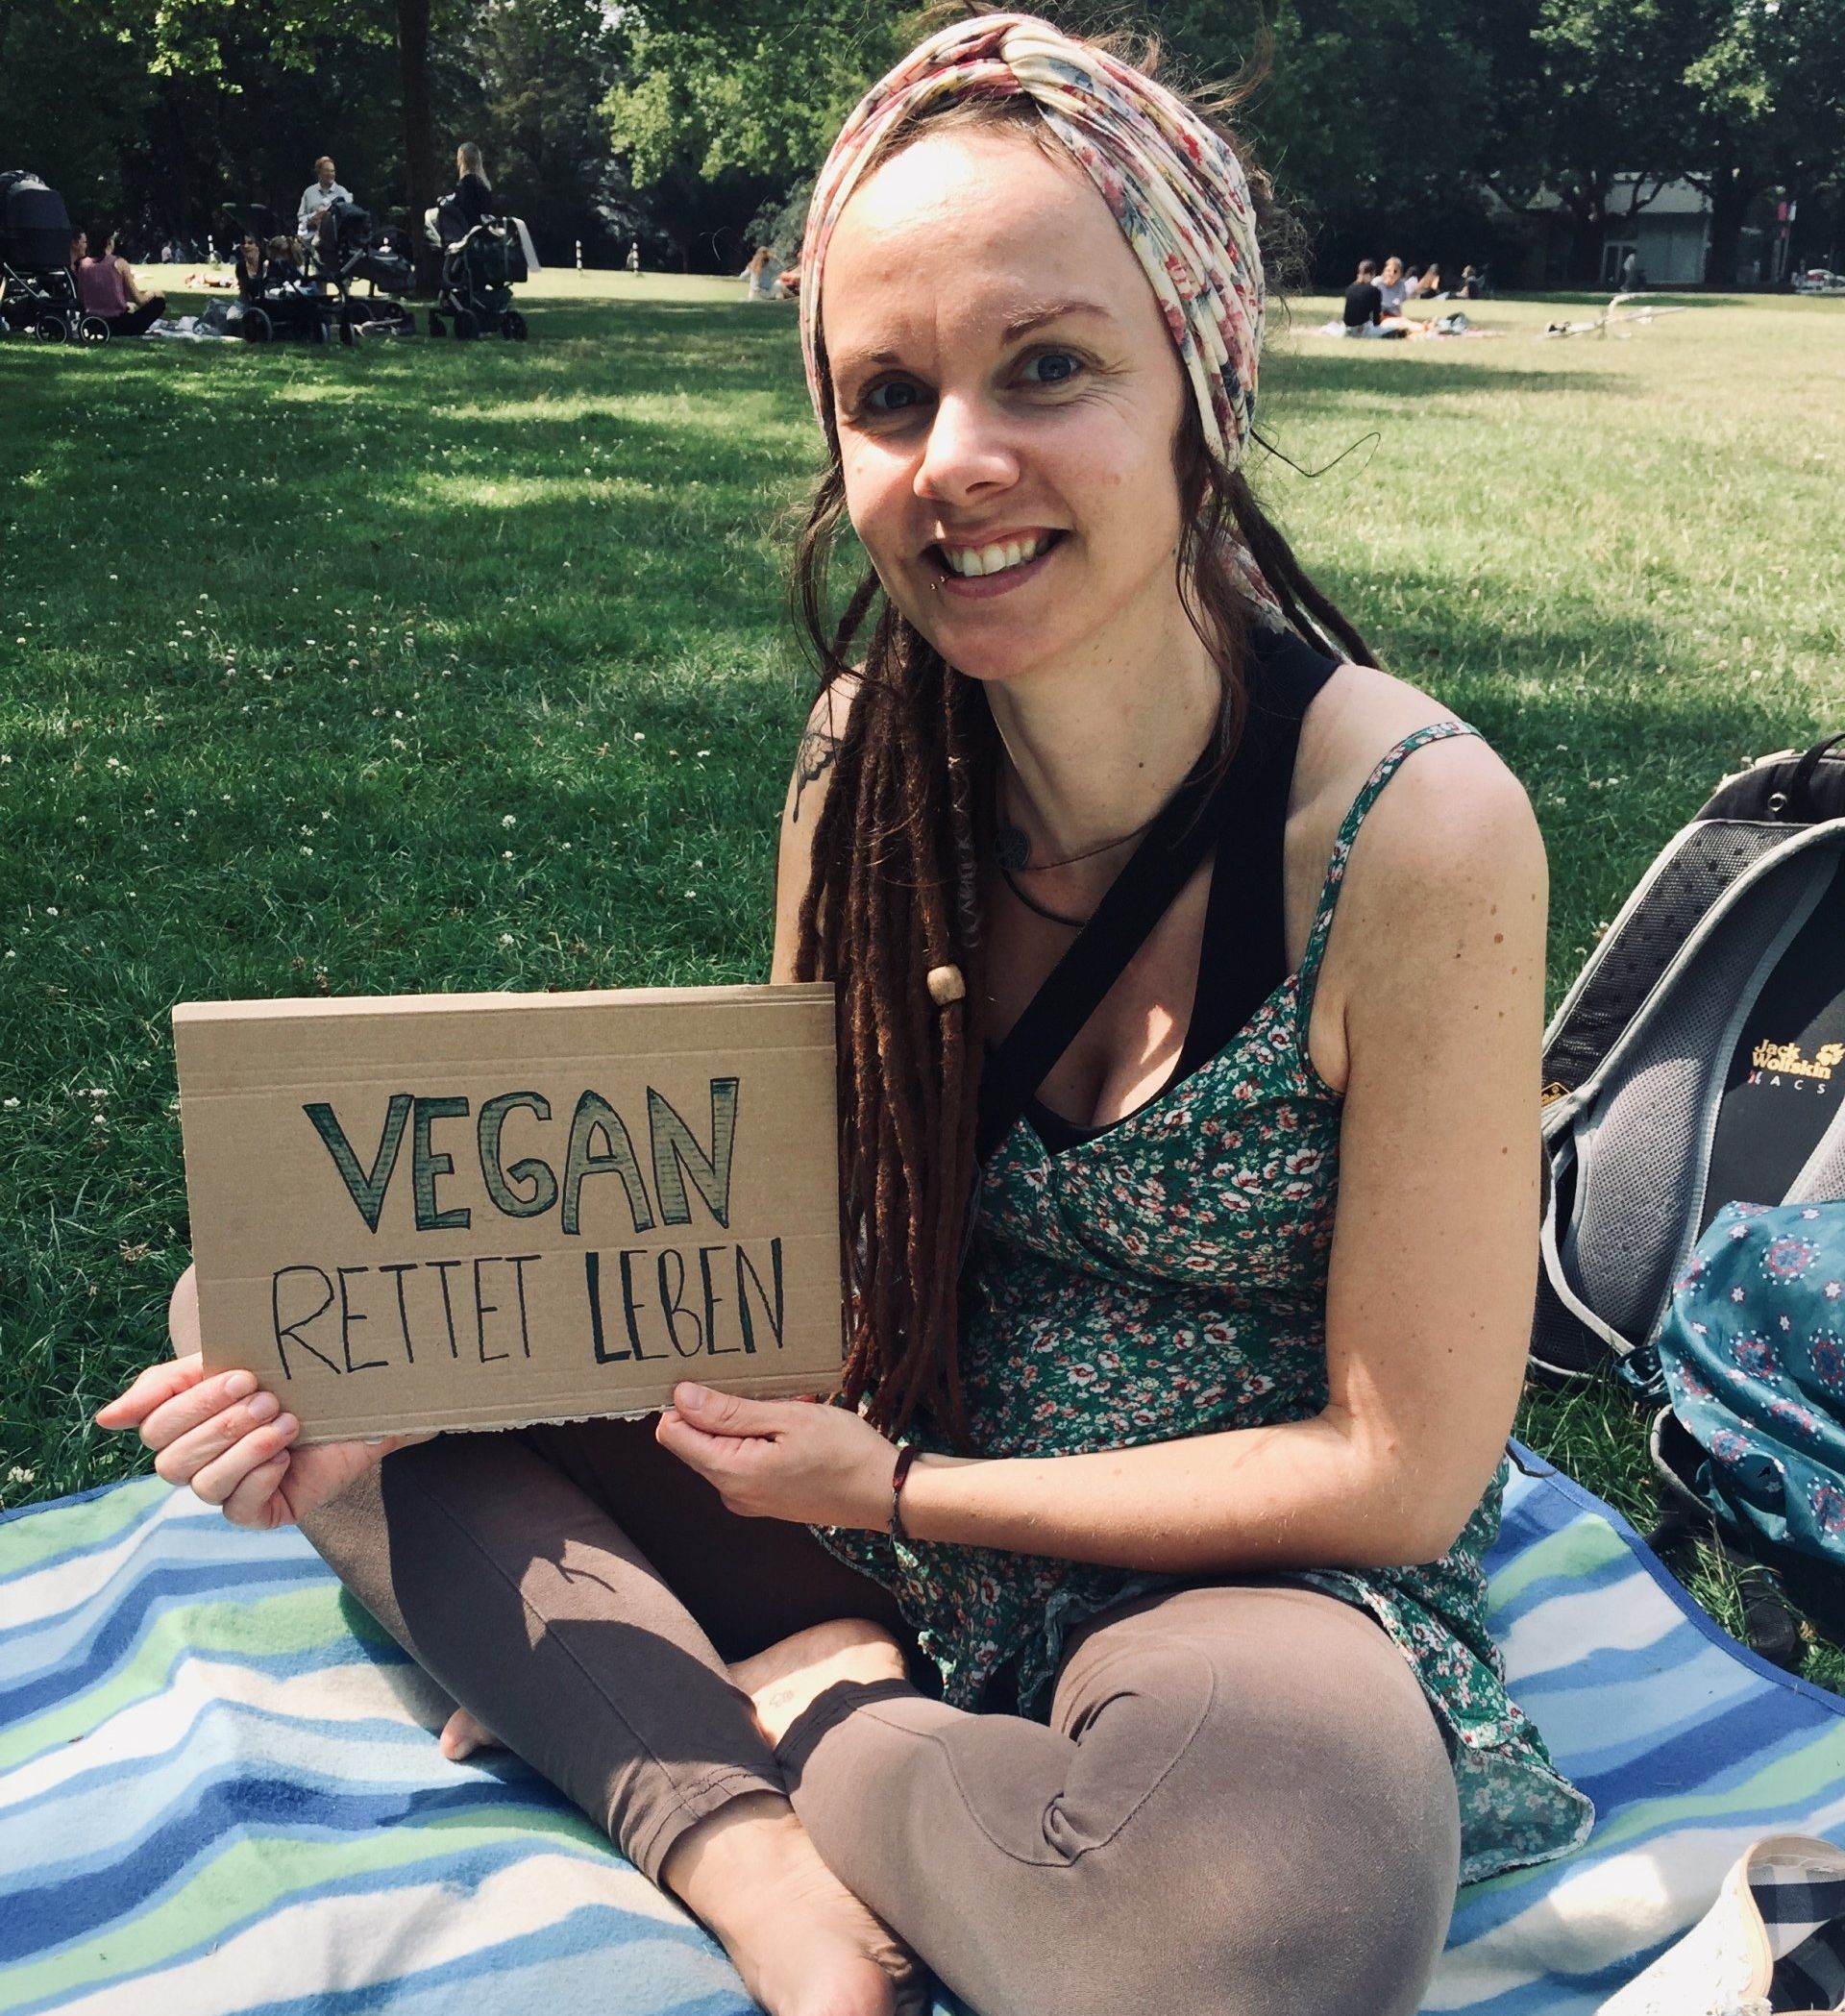 VEGAN
RETTET LEBEN
Jack
Wolfskin
ACS